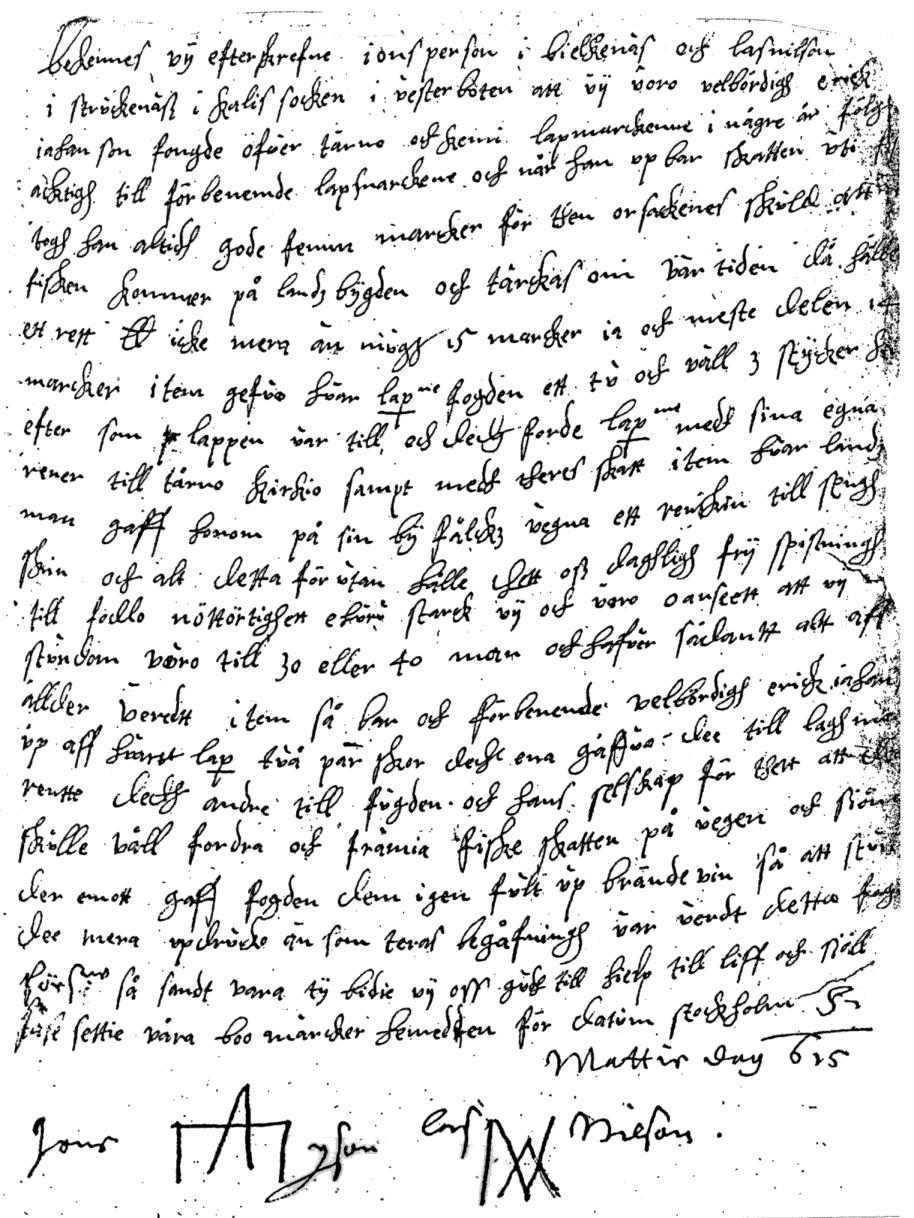 Bekennes vÿ efterskrefne ions person i bielkenäs och lasnilson
i ströckenäss i kalis socken i vesterboten att vÿ voro velbördigh erick
iahanson fougde öfuer tärno och kemi lapmarckenne i någre år fölgh
acktigh till förbenemde lapmarckene och når han up bar skatten vti
togh han altidh gode femm marcker för then orsackenes skuld att
fisken kommer på landz bÿgden och tärckas om vår tiden då hålle
ett rett lb icke mera än 15 marcker ia och meste delen 14
marcker item gefuo huar lap fogden ett tu och väll 3 stÿcker
efter som lappen var till och dech forde lap med sina egna
rener till tärno kirkio sampt medh theres skatt item huar landz
man gaff honom på sin bÿ fålckz vegna ett renskin till sengh
skin och alt detta förutan hålle thett oss daghligh frÿ spisningh
till födlo nöttörtighett ehuru starck vÿ och voro oansett att vÿ
stundom voro till 30 eller 40 man och hafuer sådantt alt aff
ållder veredtt item så bar och förbenemde velbördigh erick iahan
up aff huart lap två pår skor dech ena gåffuo dee till lagh
rentte dech andre till fogden och hans selskap för thett att
skulle väll fordra och främia fiske skatten på vegen och siön
der emott gaff fogden dem igen fult up brände vin så att
dee mera updrucko än som teras begåfningh var verdt detta
så sandt vara tÿ bidie vÿ oss gudh till hielp till liff och siäll
settie våra boo märcker hemedhen för datum stockholm
Mattis day 615
Jons yson lars Nilson .